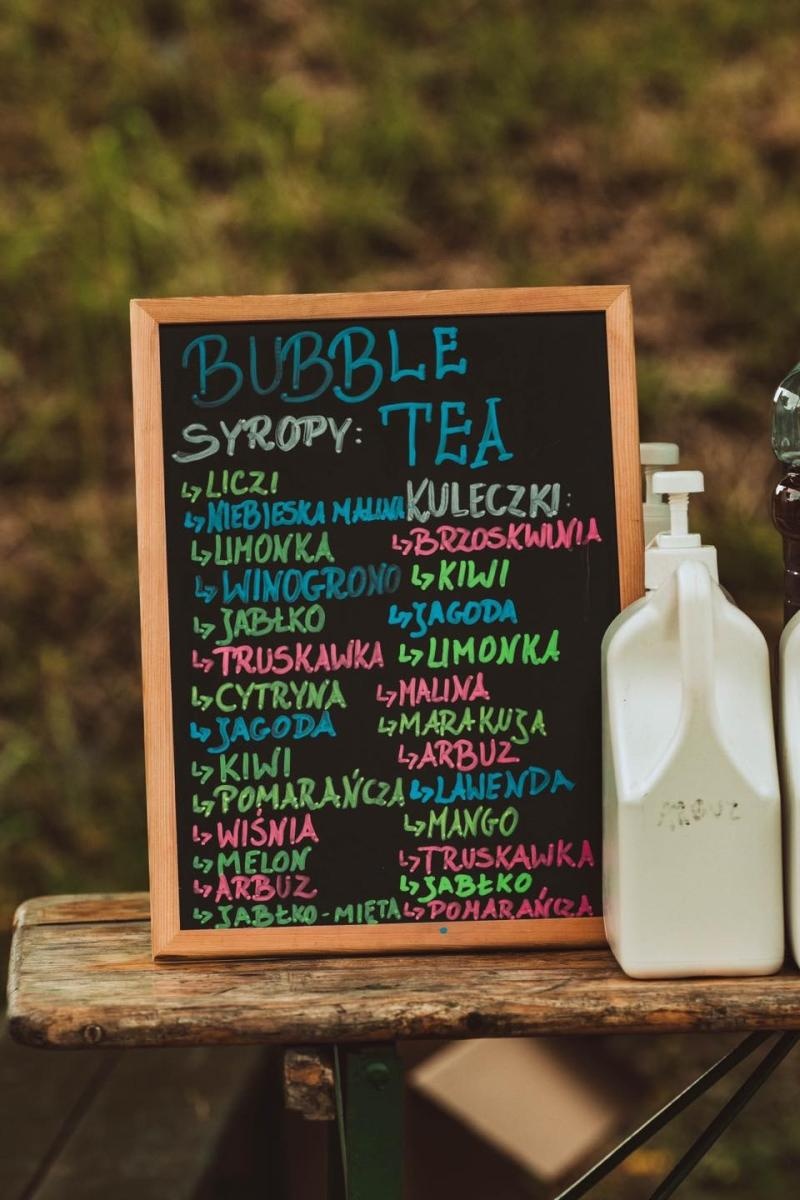 BUBBLE
TEA
SYROPY:
↳LICZI
↳NIEBIESKA MALINA
↳LIMONKA
↳WINOGRONO
↳JABŁKO
↳TRUSKAWKA
↳CYTRYNA
↳JAGODA
↳KIWI
↳POMARAŃCZA
↳WIŚNIA
↳MELON
↳ARBUZ
↳JABŁKO-MIĘTA
KULECZKI:
↳BRZOSKWINIA
↳KIWI
↳JAGODA
↳LIMONKA
↳MALINA
↳MARAKUJA
↳ARBUZ
↳LAWENDA
↳MANGO
↳TRUSKAWKA
↳JABŁKO
↳POMARAŃCZA
ARBUZ